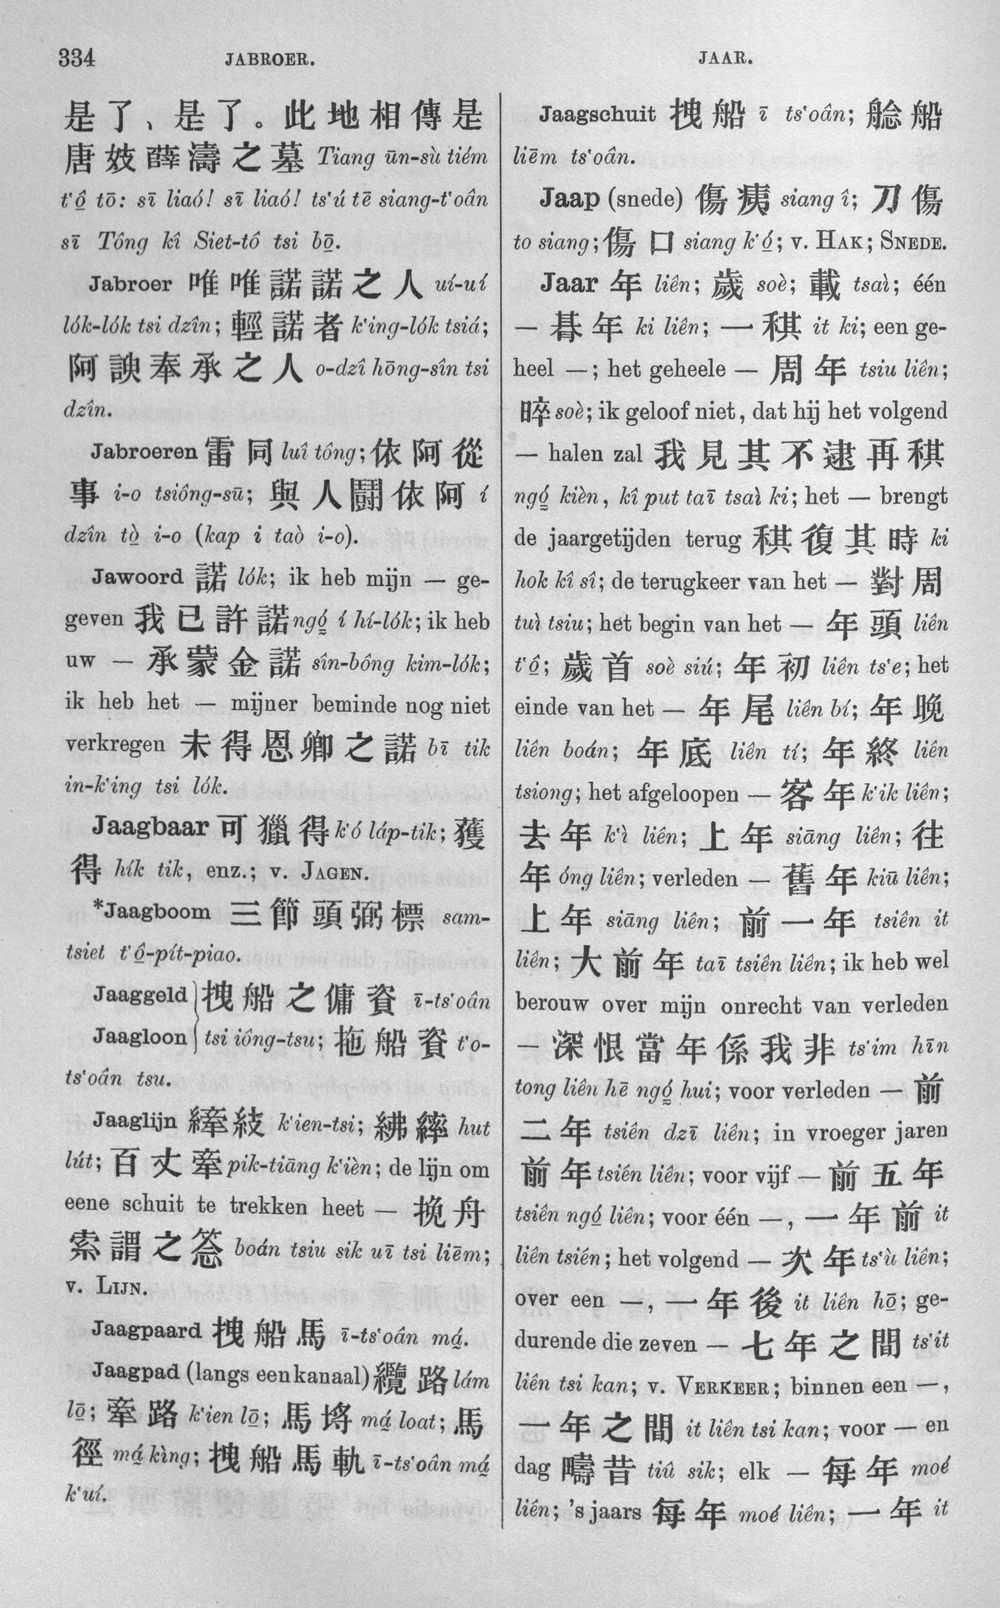 334
JABROER.
JAAR.
是了、是了。此地相傳是
唐妓薛濤之墓 Tiang ūn-sù tiém
t'ô̱ tō: sī liaó! sī liaó! ts'ú tē siang-t'oân
sī Tông kî Siet-tô tsi bō̱.
Jabroer 唯唯諾諾之人 uí-uí
lók-lók tsi dzîn; 輕諾者 k'ing-lók tsiá;
阿諛奉承之人 o-dzî hōng-sîn tsi
dzîn.
Jabroeren 雷同 luî tông; 依阿從
事 i-o tsiông-sū; 與人鬪依阿 í
dzîn tò̱ i-o (kap i taò i-o).
Jawoord 諾 lók; ik heb mijn — ge-
geven 我已許諾 ngó̱ í hí-lók; ik heb
uw — 承蒙金諾 sîn-bông kim-lók;
ik heb het — mijner beminde nog niet
verkregen 未得恩卿之諾 bī tik
in-k'ing tsi lók.
Jaagbaar 可獵得 k'ó láp-tik; 獲
得 hík tik, enz.; v. JAGEN.
*Jaagboom 三節頭弼標 sam-
tsiet t'ô̱-pít-piao.
Jaaggeld 拽船之傭資 ī-ts'oân
Jaagloon tsi iông-tsu; 拖船資 t'o-
ts'oân tsu.
Jaaglijn 縴紋 k'ien-tsi; 紼繂 hut
lút; 百丈牽 pik-tiāng k'ièn; de lijn om
eene schuit te trekken heet — 挽舟
索謂之䈴 boán tsiu sik uī tsi liēm;
v. LIJN.
Jaagpaard 拽船馬 ī-ts'oân má̱.
Jaagpad (langs een kanaal) 纜路 lám
lō̱; 牽路 k'ien lō̱; 馬埒 má̱ loat; 馬
徑 má̱ kìng; 拽船馬軌 ī-ts'oân má̱
k'uí.
Jaagschuit 拽船 ī ts'oân; 艌船
liēm ts'oân.
Jaap (snede) 傷痍 siang î; 刀傷
to siang; 傷口 siang k'ó̱; v. HAK; SNEDE.
Jaar 年 liên; 歲 soè; 載 tsaì; één
— 朞年 ki liên; 一稘 it ki; een ge-
heel —; het geheele — 周年 tsiu liên;
晬 soè; ik geloof niet, dat hij het volgend
— halen zal 我見其不逮再稘
ngó̱ kièn, kî put taī tsaì ki; het — brengt
de jaargetijden terug 稘復其時 ki
hok kî sî; de terugkeer van het — 對周
tuì tsiu; het begin van het — 年頭 liên
t'ô̱; 歲首 soè siú; 年初 liên ts'e; het
einde van het — 年尾 liên bí; 年晚
liên boán; 年底 liên tí; 年終 liên
tsiong; het afgeloopen — 客年 k'ik liên;
去年 k'ì liên; 上年 siāng liên; 往
年 óng liên; verleden — 舊年 kiū liên;
上年 siāng liên; 前一年 tsiên it
liên; 大前年 taī tsiên liên; ik heb wel
berouw over mijn onrecht van verleden
— 深恨當年係我非 ts'im hīn
tong liên hē ngó̱ hui; voor verleden — 前
二年 tsiên dzī liên; in vroeger jaren
前年 tsiên liên; voor vijf — 前五年
tsiên ngó̱ liên; voor één —, 一年前 it
liên tsiên; het volgend — 次年 ts'ù liên;
over een —, 一年後 it liên hō̱; ge-
durende die zeven — 七年之間 ts'it
liên tsi kan; v. VERKEER; binnen een —,
一年之間 it liên tsi kan; voor — en
dag 疇昔 tiû sik; elk — 每年 moé
liên; 's jaars 每年 moé liên; 一年 it